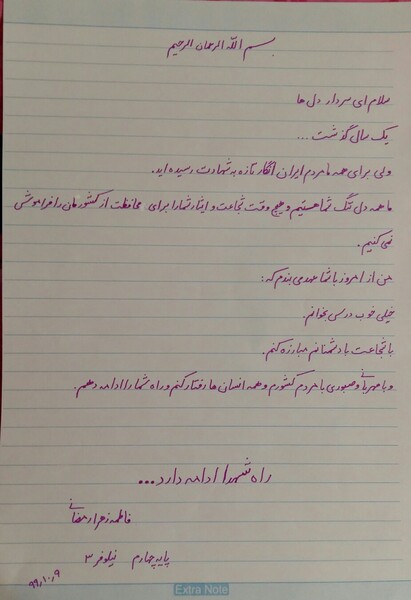 بسم الله الرحمان الرحیم
سلام ای سردار دل ها
یک سال گذشت...
ولی برای همه ما مردم ایران انگار تازه به شهادت رسیده اید.
ما همه دل تنگ شما هستیم و هیچ وقت شجاعت و ایثار شما را برای محافظت از کشورمان را فراموش
نمی کنیم.
من از امروز با شما عهدی می بندم که:
خیلی خوب درس بخوانم.
با شجاعت با دشمنانم مبارزه کنم.
و با مهربانی و صبوری با مردم کشورم و همه انسان ها رفتار کنم و راه شما را ادامه دهم.
راه شهدا ادامه دارد...
فاطمه زهرا رمضانی
پایه چهارم نیلوفر ۳
۹۹/۱۰/۹
Extra Note